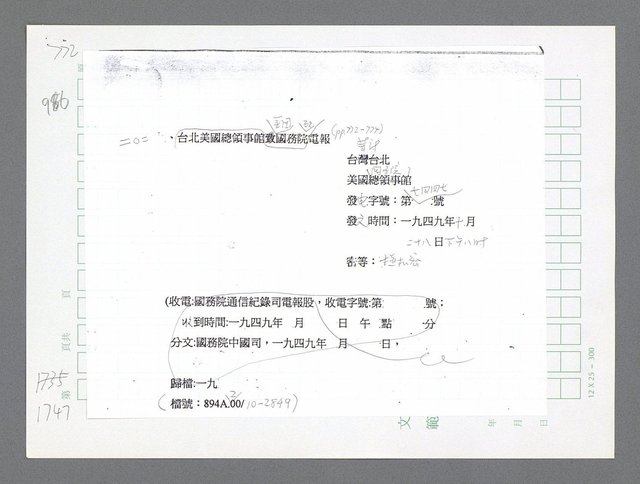 772
986
二〇二
(pp.772-774)
台北美國總領事館致國務院電報
台灣台北
美國總領事館
發 字號：第七四四七號
發文時間：一九四九年十月
二十八日下午八時
密等：極機密
(收電:國務院通信紀錄司電報股，收電字號:第 號；
收到時間:一九四九年 月 日 午 點 分
分文:國務院中國司，一九四九年 月 日，
歸檔:一九
(檔號：894A.00/10-2849)
頁
頁共
第
1735
1747
文 範
年 月 日
12 X 25 - 300